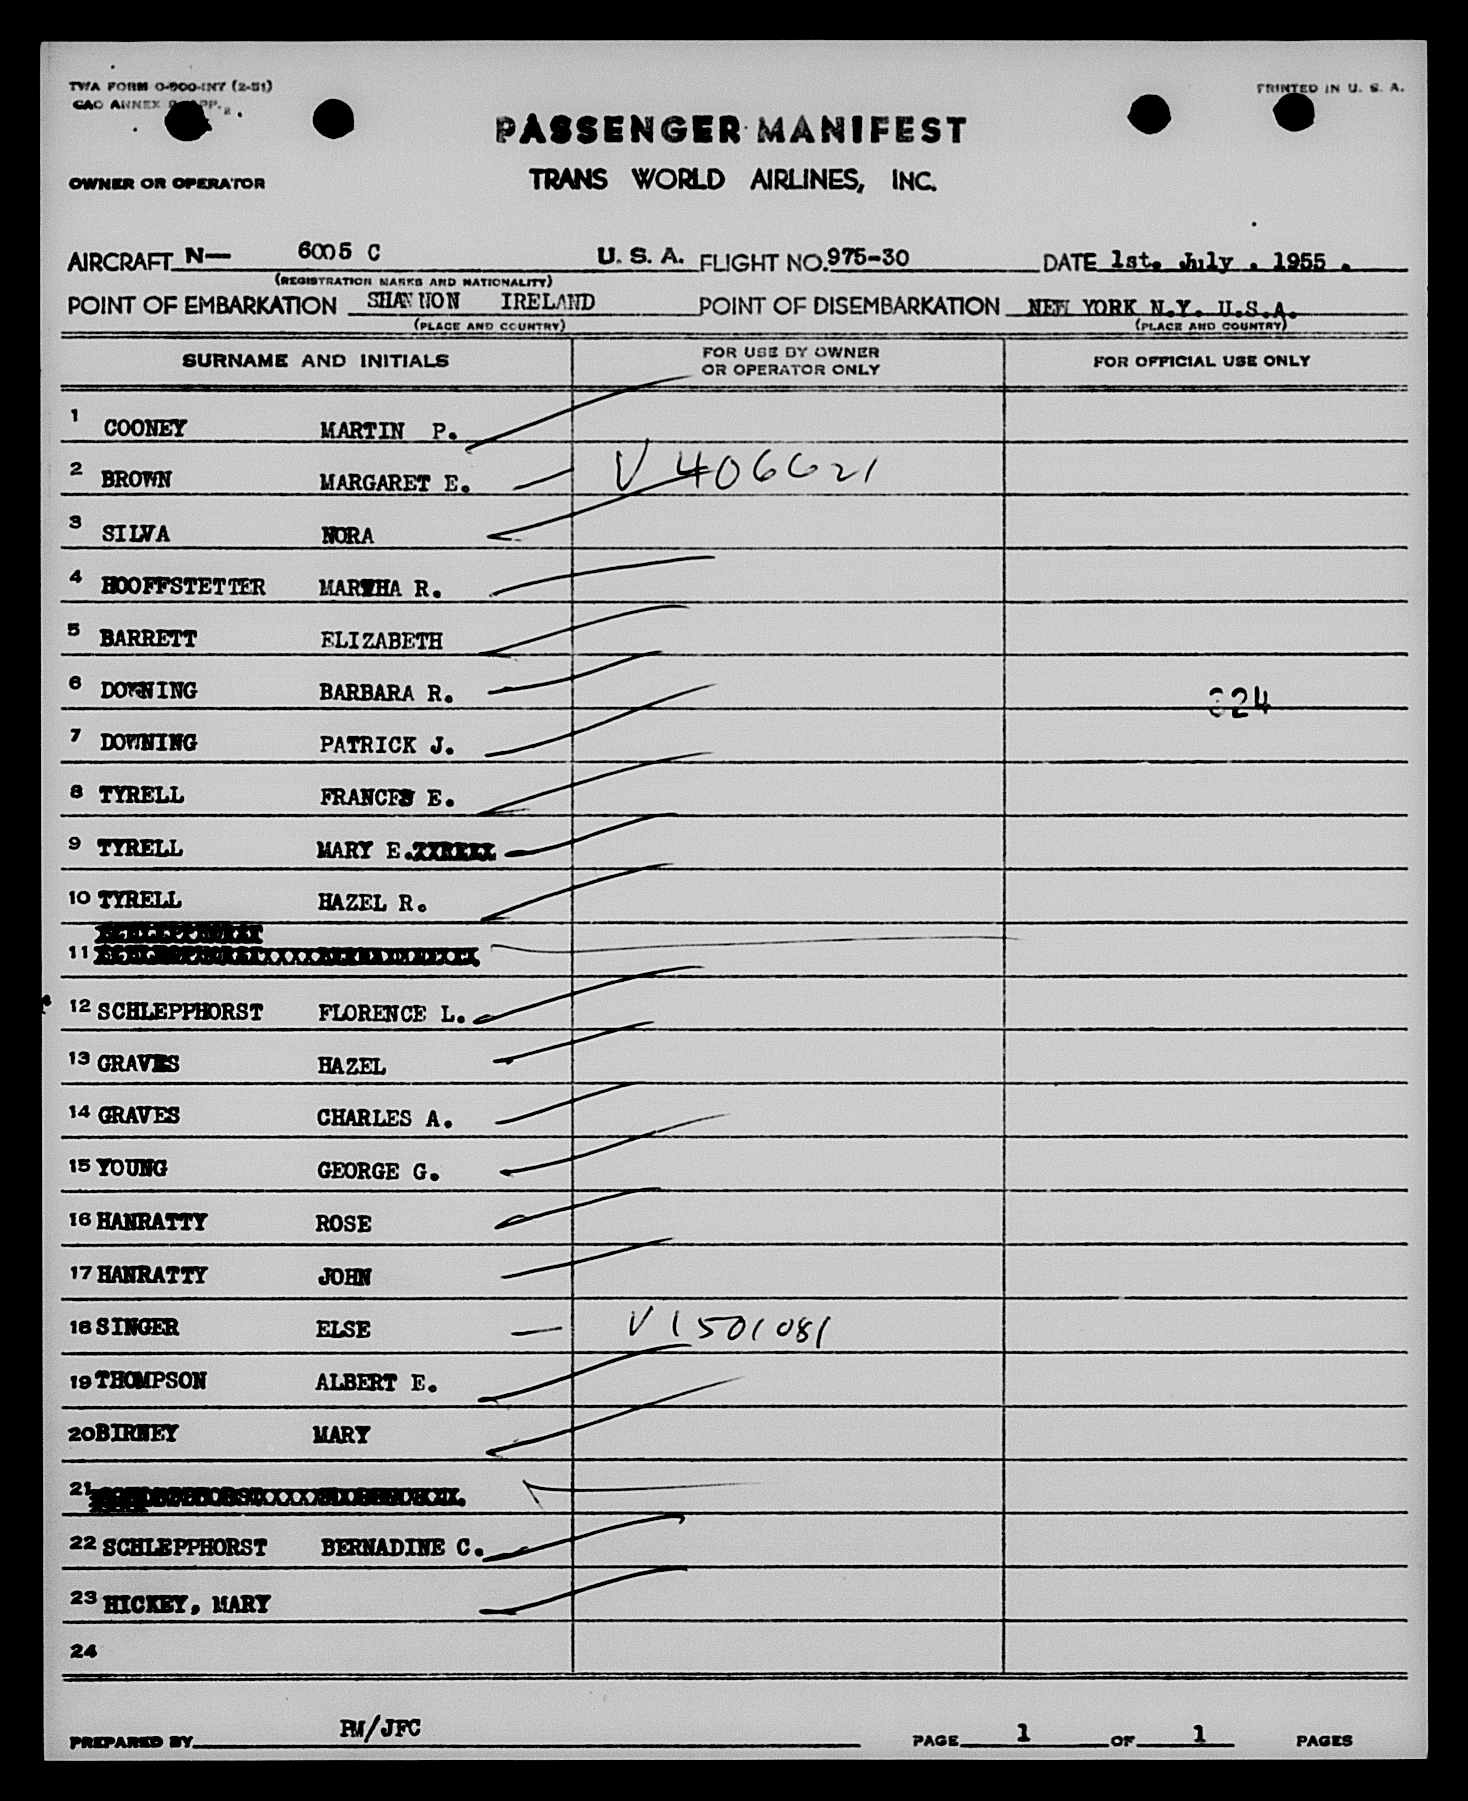 TWA FORM O-900-INT (2-51)
PRINTED IN U. S. A.
CAO ANNEX
PASSENGER MANIFEST
OWNER OR OPERATOR
TRANS WORLD AIRLINES, INC.
AIRCRAFT N— 6005 C U. S. A. FLIGHT NO. 975-30 DATE 1st. July . 1955 .
(REGISTRATION MARKS AND NATIONALITY)
POINT OF EMBARKATION SHANNON IRELAND POINT OF DISEMBARKATION NEW YORK N.Y. U.S.A.
(PLACE AND COUNTRY) (PLACE AND COUNTRY)
SURNAME AND INITIALS FOR USE BY OWNER OR OPERATOR ONLY FOR OFFICIAL USE ONLY
1 COONEY MARTIN P.
2 BROWN MARGARET E. V 406621
3 SILVA NORA
4 HOOFFSTETTER MARTHA R.
5 BARRETT ELIZABETH
6 DOWNING BARBARA R.
324
7 DOWNING PATRICK J.
8 TYRELL FRANCES E.
9 TYRELL MARY E.
10 TYRELL HAZEL R.
11
12 SCHLEPPHORST FLORENCE L.
13 GRAVES HAZEL
14 GRAVES CHARLES A.
15 YOUNG GEORGE G.
16 HANRATTY ROSE
17 HANRATTY JOHN
18 SINGER ELSE V 1501081
19 THOMPSON ALBERT E.
20 BIRNEY MARY
21
22 SCHLEPPHORST BERNADINE C.
23 HICKEY, MARY
24
PREPARED BY PM/JFC PAGE 1 OF 1 PAGES